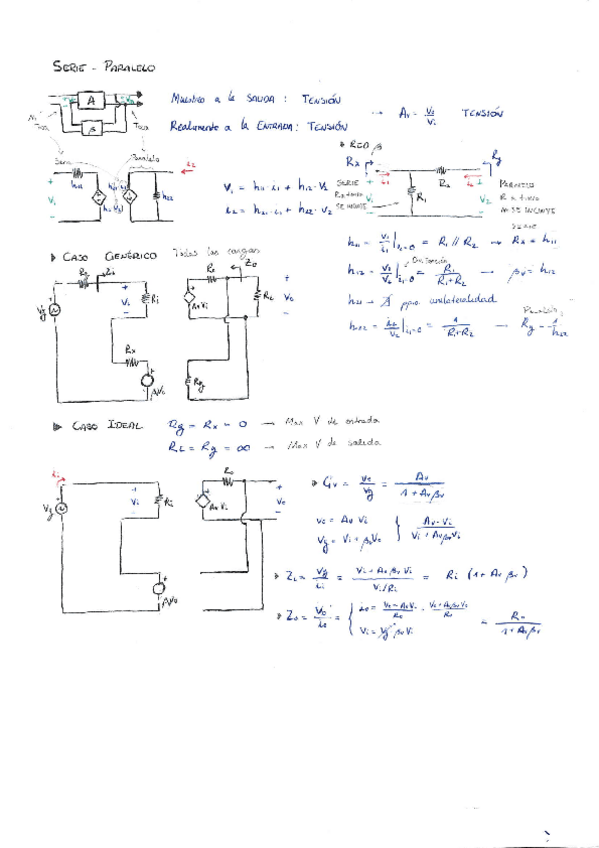 SERIE - PARALELO
A
β
Muestreo a la SALIDA : TENSIÓN
→ Av = Vo/Vi TENSIÓN
Realimento a la ENTRADA : TENSIÓN
Serie
Paralelo
h11
h22
Vi
V1 = h11 · i1 + h12 · V2
i2 = h21 · i1 + h22 · V2
RED β
Rx
Ry
R2
R1
V2
SERIE
SE INCLUYE
PARALELO
h11 = V1/i1 | = R1 // R2 → Rx = h11
h12 = V1/V2 | i1=0 = R1/(R1+R2) → βv = h12
h21 → ppio unilateralidad
h22 = i2/V2 | i1=0 = 1/(R1+R2) → Ry = 1/h22
CASO GENÉRICO Todas las cargas
Zi
Zo
Vg
Vi
Ri
Ro
AvVi
RL
Vo
Rx
βVo
Ry
CASO IDEAL Rg = Rx = 0 → Max V de entrada
RL = Ry = ∞ → Max V de salida
Vg
Vi
Ri
AvVi
Vo
βVo
Gv = Vo/Vg = Av/(1 + Avβv)
Vo = Av Vi
Vg = Vi + βvVo } Av·Vi/(Vi + AvβvVi)
Zi = Vg/ii = (Vi + AvβvVi)/(Vi/Ri) = Ri (1 + Avβv)
Zo = Vo/io = { io = (Vo - AvVi)/Ro = (Vo + AvβvVo)/Ro
Vi = Vg βvVi
= Ro/(1 + Avβv)